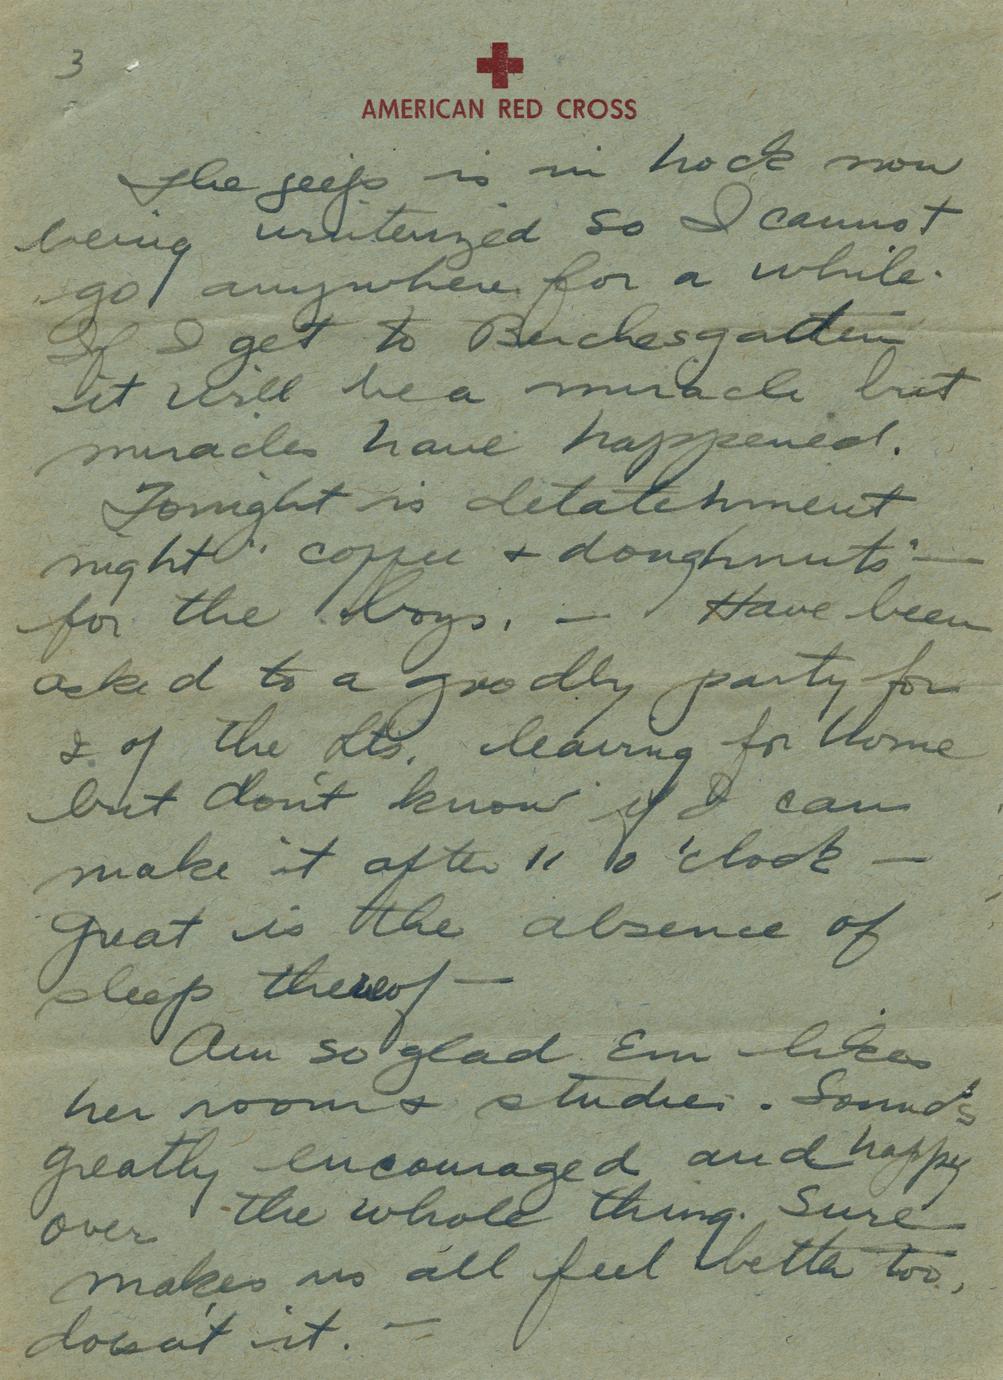 3
AMERICAN RED CROSS
The jeep is in hock now
being winterized so I cannot
go anywhere for a while.
If I get to Berchesgatten
it will be a miracle but
miracles have happened.
Tonight is detatchment
night "coffee + doughnuts" —
for the boys. — Have been
asked to a goodly party for
2 of the Lts. leaving for home
but don't know if I can
make it after 11 o'clock —
great is the absence of
sleep thereof —
Am so glad Em likes
her room + studies. Sounds
greatly encouraged and happy
over the whole thing. Sure
makes us all feel better too,
doesn't it. —